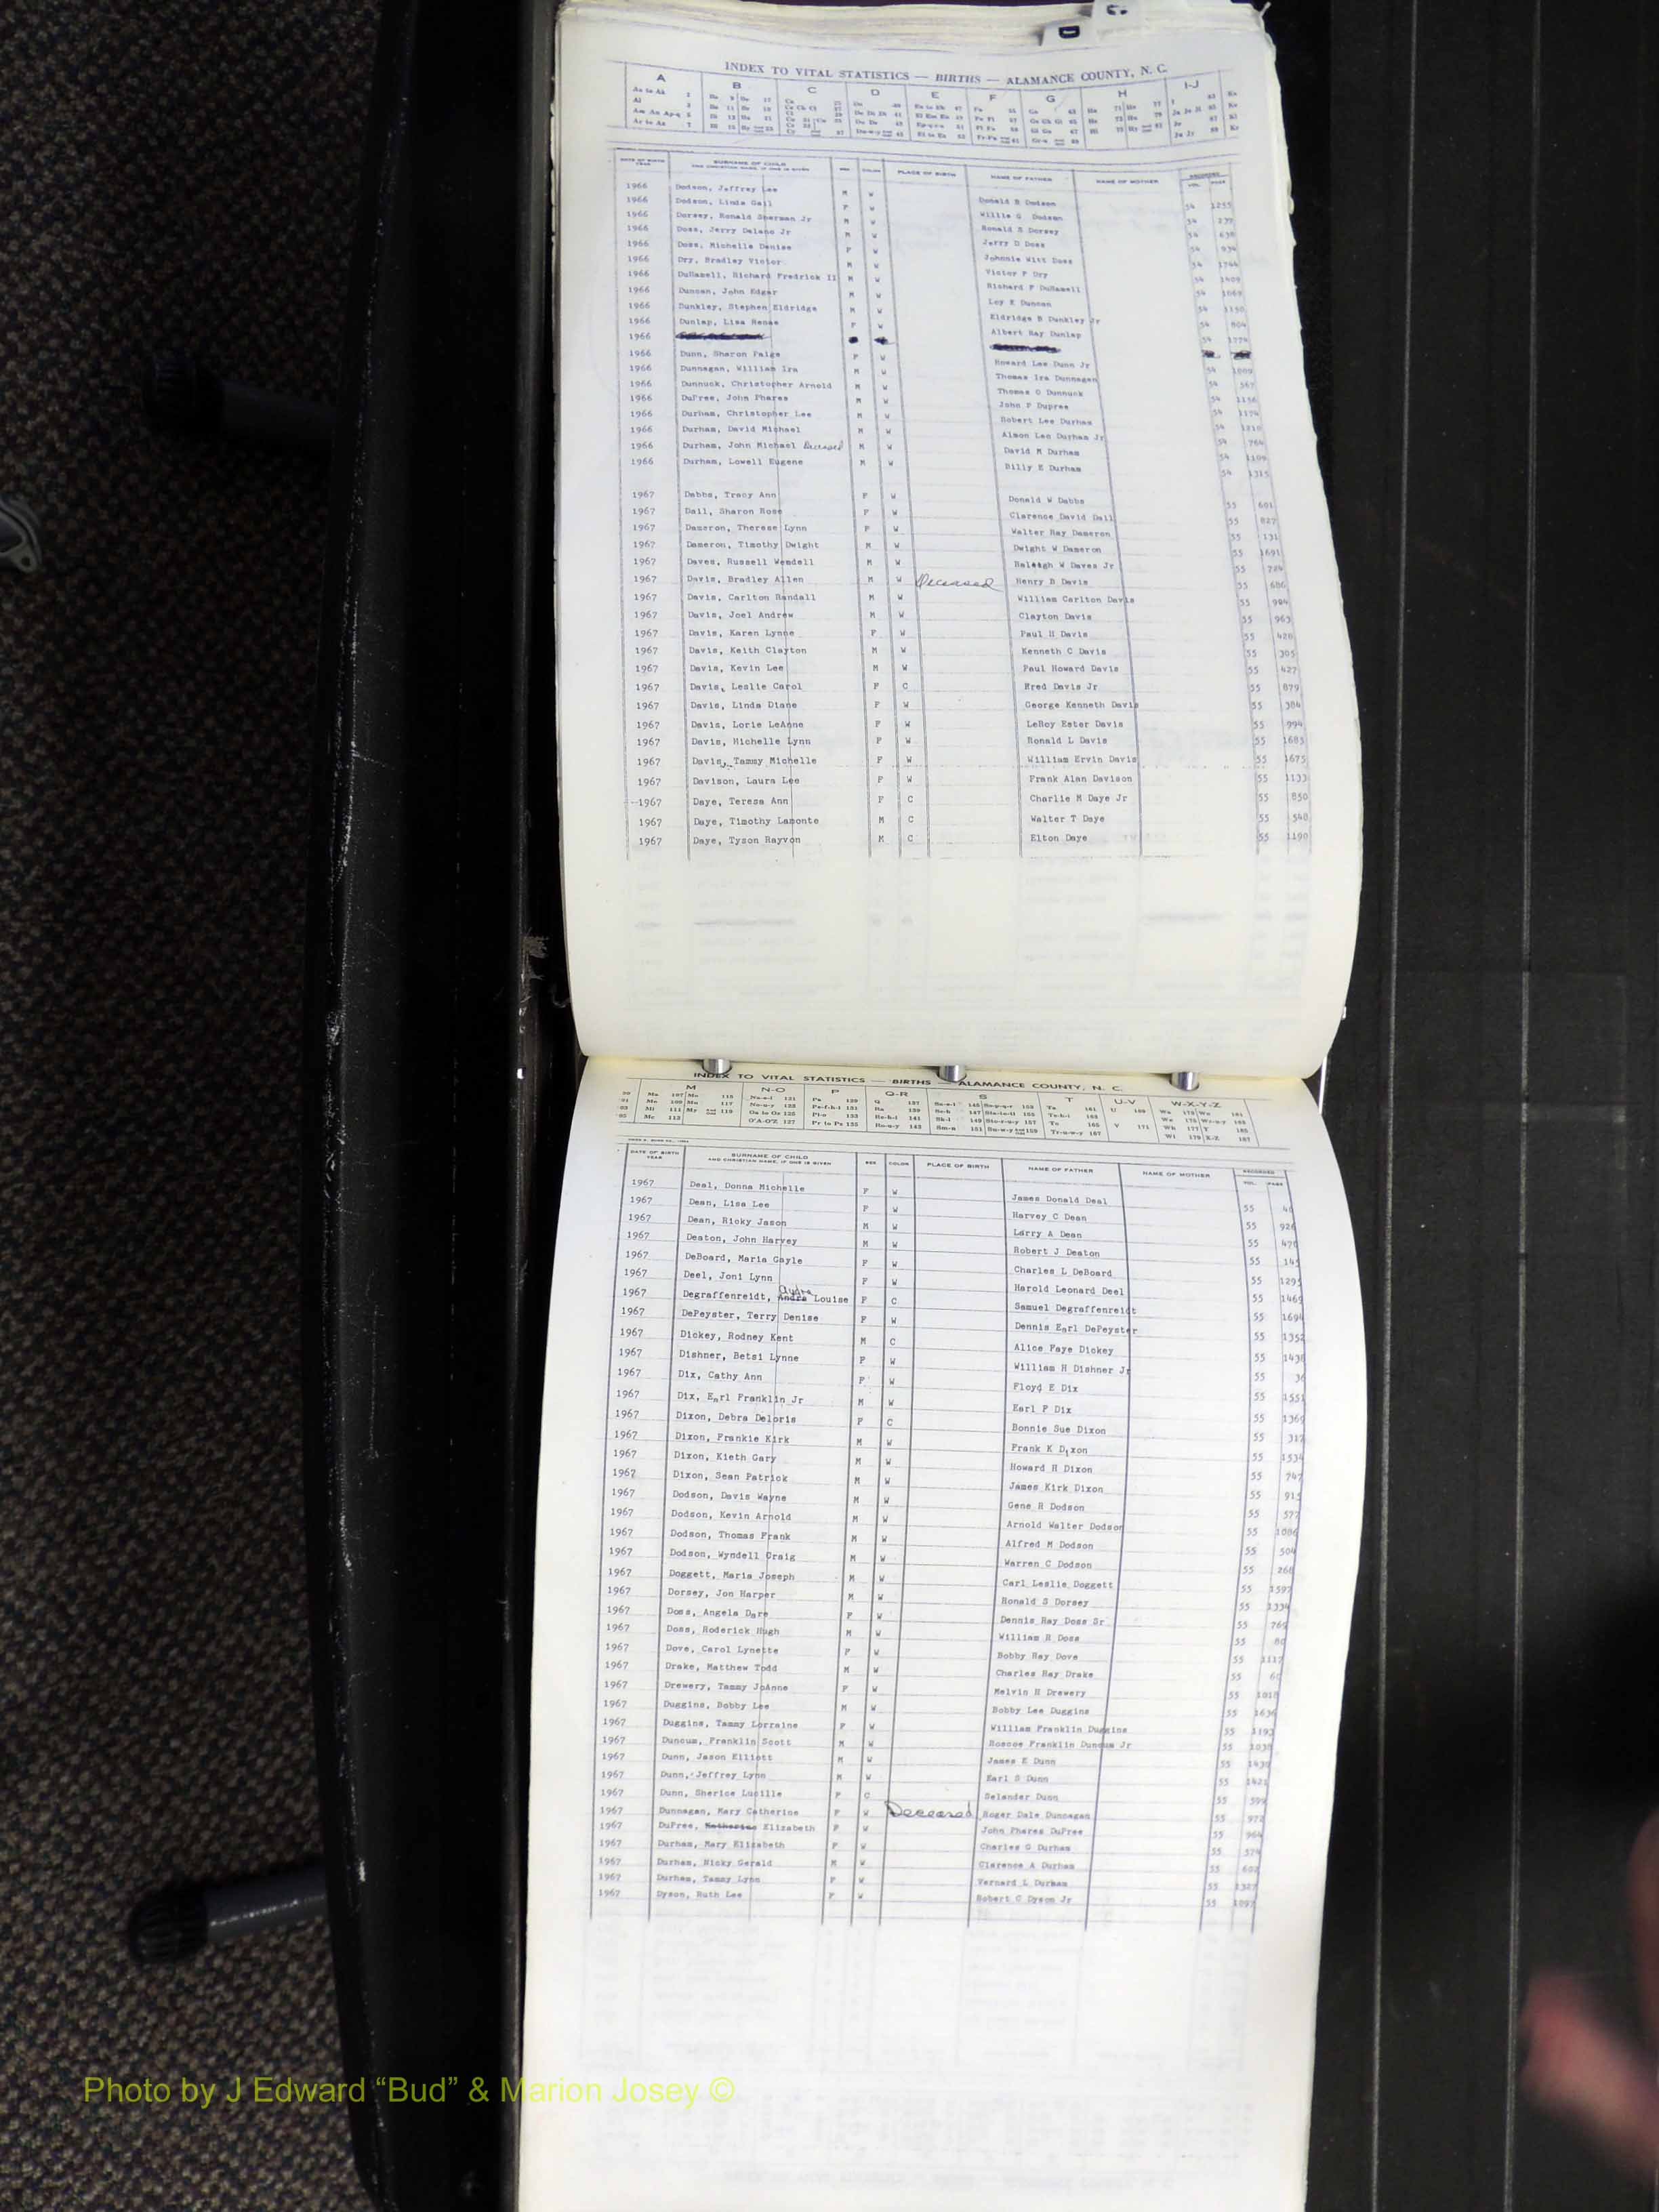 C
D
INDEX TO VITAL STATISTICS — BIRTHS — ALAMANCE COUNTY, N. C.
A B C D E F G H I-J
DATE OF BIRTH YEAR SURNAME OF CHILD AND CHRISTIAN NAME, IF ONE IS GIVEN SEX COLOR PLACE OF BIRTH NAME OF FATHER NAME OF MOTHER RECORDED VOL. PAGE
1966 Dodson, Jeffrey Lee M W Donald R Dodson 54 1253
1966 Dodson, Linda Gail F W Willie G Dodson 54 237
1966 Dorsey, Ronald Sherman Jr M W Ronald S Dorsey 54 638
1966 Doss, Jerry Delano Jr M W Jerry D Doss 54 934
1966 Doss, Michelle Denise F W Johnnie Witt Doss 54 1744
1966 Dry, Bradley Victor M W Victor F Dry 54
1966 DuHamell, Richard Fredrick II M W Richard F DuHamell 54
1966 Duncan, John Edgar M W Loy E Duncan 54 1150
1966 Dunkley, Stephen Eldridge M W Eldridge B Dunkley Jr 54 804
1966 Dunlap, Lisa Renae F W Albert Ray Dunlap 54 1774
1966
1966 Dunn, Sharon Paige F W Howard Lee Dunn Jr 54
1966 Dunnagan, William Ira M W Thomas Ira Dunnagan 54 567
1966 Dunnuck, Christopher Arnold M W Thomas O Dunnuck 54 1156
1966 DuPree, John Phares M W John P Dupree 54 1174
1966 Durham, Christopher Lee M W Robert Lee Durham 54 1210
1966 Durham, David Michael M W Almon Leo Durham Jr 54 764
1966 Durham, John Michael Deceased M W David M Durham 54 1109
1966 Durham, Lowell Eugene M W Billy E Durham 54 1315
1967 Dabbs, Tracy Ann F W Donald W Dabbs 55 601
1967 Dail, Sharon Rose F W Clarence David Dail 55 827
1967 Dameron, Therese Lynn F W Walter Ray Dameron 55 131
1967 Dameron, Timothy Dwight M W Dwight W Dameron 55 1691
1967 Daves, Russell Wendell M W Raleigh W Daves Jr 55 724
1967 Davis, Bradley Allen M W Deceased Henry B Davis 55 686
1967 Davis, Carlton Randall M W William Carlton Davis 55 984
1967 Davis, Joel Andrew M W Clayton Davis 55 963
1967 Davis, Karen Lynne F W Paul H Davis 55 428
1967 Davis, Keith Clayton M W Kenneth C Davis 55 305
1967 Davis, Kevin Lee M W Paul Howard Davis 55 427
1967 Davis, Leslie Carol F C Fred Davis Jr 55 879
1967 Davis, Linda Diane F W George Kenneth Davis 55 384
1967 Davis, Lorie LeAnne F W LeRoy Ester Davis 55 994
1967 Davis, Michelle Lynn F W Ronald L Davis 55 1683
1967 Davis, Tammy Michelle F W William Ervin Davis 55 1675
1967 Davison, Laura Lee F W Frank Alan Davison 55 1133
1967 Daye, Teresa Ann F C Charlie M Daye Jr 55 850
1967 Daye, Timothy Lamonte M C Walter T Daye 55 548
1967 Daye, Tyson Rayvon M C Elton Daye 55 1190
INDEX TO VITAL STATISTICS — BIRTHS — ALAMANCE COUNTY, N. C.
M N-O P Q-R S T U-V W-X-Y-Z
DATE OF BIRTH YEAR SURNAME OF CHILD AND CHRISTIAN NAME, IF ONE IS GIVEN SEX COLOR PLACE OF BIRTH NAME OF FATHER NAME OF MOTHER RECORDED VOL. PAGE
1967 Deal, Donna Michelle F W James Donald Deal 55
1967 Dean, Lisa Lee F W Harvey C Dean 55 926
1967 Dean, Ricky Jason M W Larry A Dean 55 478
1967 Deaton, John Harvey M W Robert J Deaton 55 145
1967 DeBoard, Maria Gayle F W Charles L DeBoard 55 1295
1967 Deel, Joni Lynn F W Harold Leonard Deel 55 1469
1967 Degraffenreidt, Andra Audra Louise F C Samuel Degraffenreidt 55 1694
1967 DePeyster, Terry Denise F W Dennis Earl DePeyster 55 1352
1967 Dickey, Rodney Kent M C Alice Faye Dickey 55 1438
1967 Dishner, Betsi Lynne F W William H Dishner Jr 55 36
1967 Dix, Cathy Ann F W Floyd E Dix 55 1551
1967 Dix, Earl Franklin Jr M W Earl F Dix 55 1369
1967 Dixon, Debra Deloris F C Bonnie Sue Dixon 55 317
1967 Dixon, Frankie Kirk M W Frank K Dixon 55 1534
1967 Dixon, Kieth Gary M W Howard H Dixon 55 747
1967 Dixon, Sean Patrick M W James Kirk Dixon 55 915
1967 Dodson, Davis Wayne M W Gene R Dodson 55 577
1967 Dodson, Kevin Arnold M W Arnold Walter Dodson 55 1086
1967 Dodson, Thomas Frank M W Alfred M Dodson 55 504
1967 Dodson, Wyndell Craig M W Warren C Dodson 55 268
1967 Doggett, Maria Joseph M W Carl Leslie Doggett 55 1597
1967 Dorsey, Jon Harper M W Ronald S Dorsey 55 1334
1967 Doss, Angela Dare F W Dennis Ray Doss Sr 55 769
1967 Doss, Roderick Hugh M W William R Doss 55 80
1967 Dove, Carol Lynette F W Bobby Ray Dove 55 1117
1967 Drake, Matthew Todd M W Charles Ray Drake 55
1967 Drewery, Tammy JoAnne F W Melvin H Drewery 55 1018
1967 Duggins, Bobby Lee M W Bobby Lee Duggins 55 1636
1967 Duggins, Tammy Lorraine F W William Franklin Duggins 55 1193
1967 Duncum, Franklin Scott M W Roscoe Franklin Duncum Jr 55 1038
1967 Dunn, Jason Elliott M W James E Dunn 55 1430
1967 Dunn, Jeffrey Lynn M W Earl S Dunn 55 1421
1967 Dunn, Sherice Lucille F C Selander Dunn 55 599
1967 Dunnagan, Mary Catherine F W Deceased Roger Dale Dunnagan 55 972
1967 DuPree, Katherine Elizabeth F W John Phares DuPree 55 964
1967 Durham, Mary Elizabeth F W Charles G Durham 55 574
1967 Durham, Nicky Gerald M W Clarence A Durham 55 602
1967 Durham, Tammy Lynn F W Vernard L Durham 55 1327
1967 Dyson, Ruth Lee F W Robert C Dyson Jr 55 1097
Photo by J Edward “Bud” & Marion Josey ©